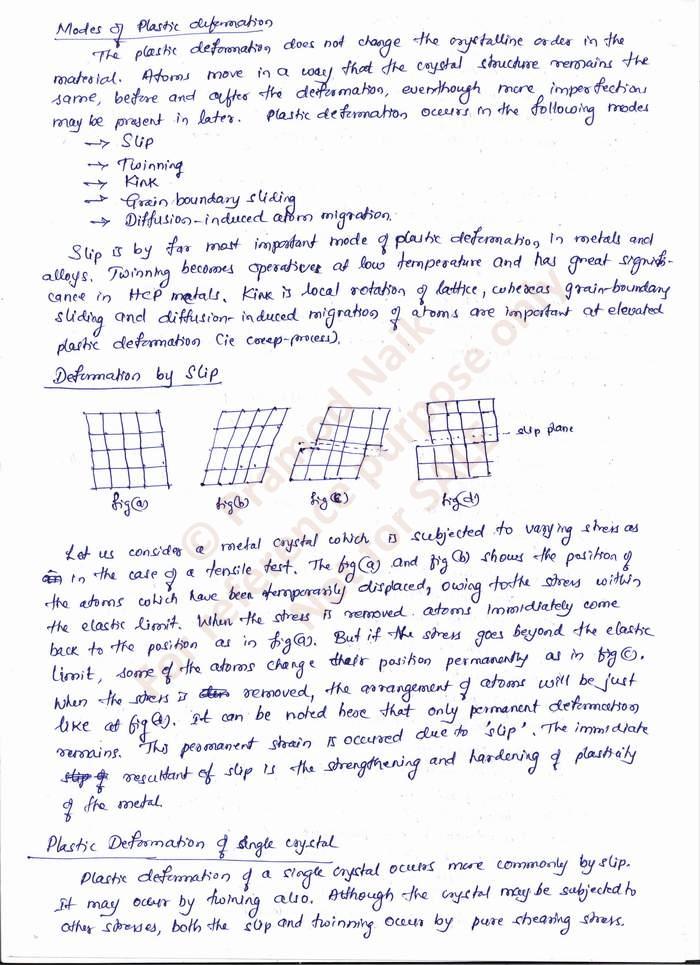 Modes of Plastic deformation
The plastic deformation does not change the crystalline order in the
material. Atoms move in a way that the crystal structure remains the
same, before and after the deformation, eventhough more imperfections
may be present in later. Plastic deformation occurs in the following modes
→ Slip
→ Twinning
→ Kink
→ Grain boundary sliding
→ Diffusion-induced atom migration.
Slip is by far most important mode of plastic deformation, in metals and
alloys. Twinning becomes operatives at low temperature and has great signifi-
cance in HCP metals. Kink is local rotation of lattice, whereas grain-boundary
sliding and diffusion-induced migration of atoms are important at elevated
plastic deformation (ie creep-process).
Deformation by Slip
slip plane
fig(a) fig(b) fig(c) fig(d)
Let us consider a metal crystal which is subjected to varying stress as
in the case of a tensile test. The fig(a) and fig(b) shows the position of
the atoms which have been temporarily displaced, owing to the stress within
the elastic limit. When the stress is removed atoms immidiately come
back to the position as in fig(a). But if the stress goes beyond the elastic
limit, some of the atoms change their position permanently as in fig(c).
When the stress is removed, the arrangement of atoms will be just
like at fig(d). It can be noted here that only permanent deformation
remains. This permanent strain is occured due to 'slip'. The immidiate
resultant of slip is the strengthening and hardening of plasticity
of the metal.
Plastic Deformation of single crystal
Plastic deformation of a single crystal occurs more commonly by slip.
It may occur by twining also. Although the crystal may be subjected to
other stresses, both the slip and twinning occur by pure shearing stress.
© Pramod Naik
For reference purpose only